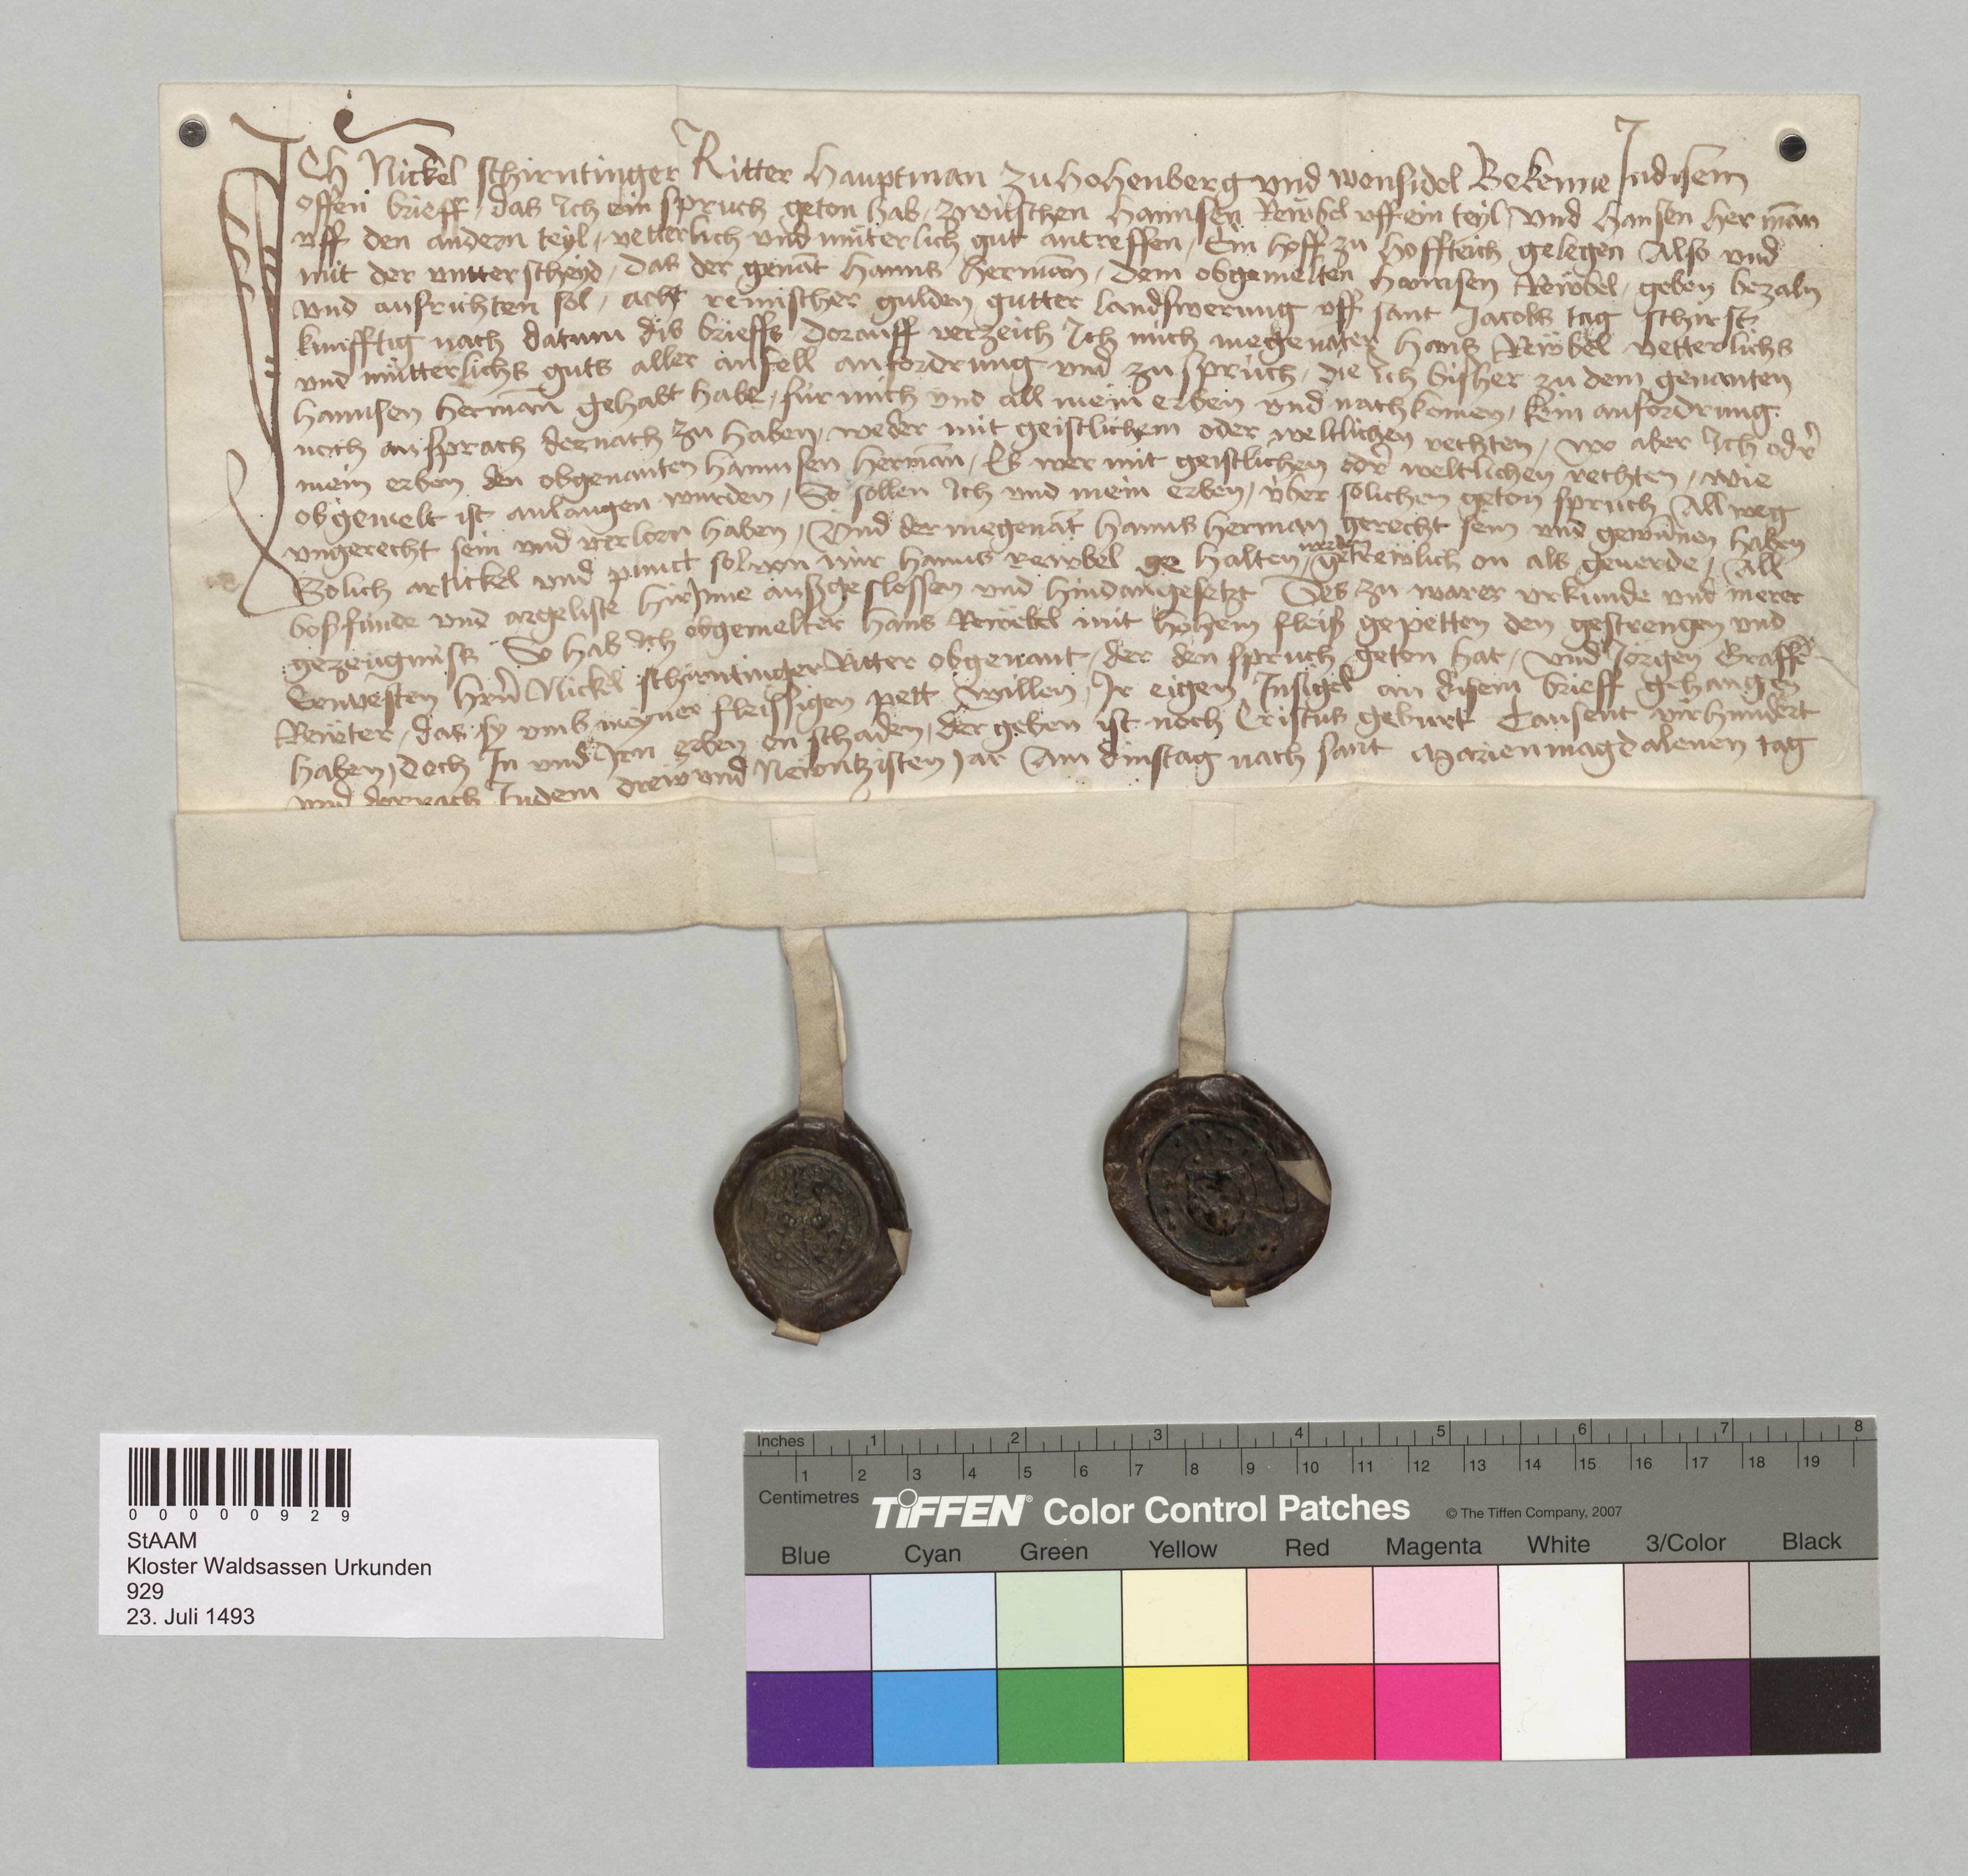 Ich Nickel schirntinger Ritter hauptman zu hohenberg vnd wonsidel Bekenne Indisem
offen brieff, das Ich ein spruch geton hab, zwischen hannsen Rewbel vff ein teyl, vnd hansen herman
vff den andern teyl, vetterlich vnd muterlich gut antreffen, Ein hoff zu hoffteich gelegen Also vnd
mit der vntterscheyd, das der genāt hanns Hermān, dem obgemelten hannsen Rewbel, geben bezaln
vnd ausrichten sol, acht reinischer gulden gutter landswerung vff sant Jacobs tag schirst
kunfftig nach datum dis brieffs, dorauff verzeich Ich mich megenāter hans Rewbel vetterlichs
vnd mutterlichs guts aller anfell anfordrung vnd zuspruch, die Ich bisher zu dem genanten
hannsen Hermān gehabt habe, fur mich vnd all mein erben vnd nachkomen, kein anfordrung
noch ansprach dernach zu haben, weder mit geistlichem oder weltlichen rechten, wo aber Ich odr
mein erben den obgenanten hannsen Hermān, Es wer mit geistlichen odr weltlichen rechten, wie
obgemelt ist anlangen wurden, So sollen Ich vnd mein erben, vber solichen geton spruch All weg
vngerecht sein vnd verlorn haben, Vnd der megenāt hanns herman gerecht sein vnd gewunnen haben
Solich artickel vnd punct sol von mir hanns rewbel ge halten werden, getrewlich on als geuerde, All
bosfunde vnd argeliste hirjnne aussgeslossen vnd hindangesetzt Des zu warer vrkunde vnd merer
gezeugnuss So hab Ich obgemelter hans Rewbel mit hohem fleiss gepetten den gestrengen vnd
Ernvesten hrn Nickel schirntinger Ritter obgenant, der den spruch geton hat, vnd Jorgen Graff
Reuter, das sy vmb meyner fleissigen pett willen, Ir eigen Insigel an disem brieff gehangen
haben, doch In vnd Irn erben on schaden, der geben ist noch Cristus geburt Tausent virhundert
vnd dornach Indem drew vnd Newntzisten Jar Am dinstag nach sant Marien magdalenen tag
00000929
StAAM
Kloster Waldsassen Urkunden
929
23. Juli 1493
Inches 1 2 3 4 5 6 7 8
1 2 3 4 5 6 7 8 9 10 11 12 13 14 15 16 17 18 19
Centimetres
TIFFEN® Color Control Patches © The Tiffen Company, 2007
Blue Cyan Green Yellow Red Magenta White 3/Color Black